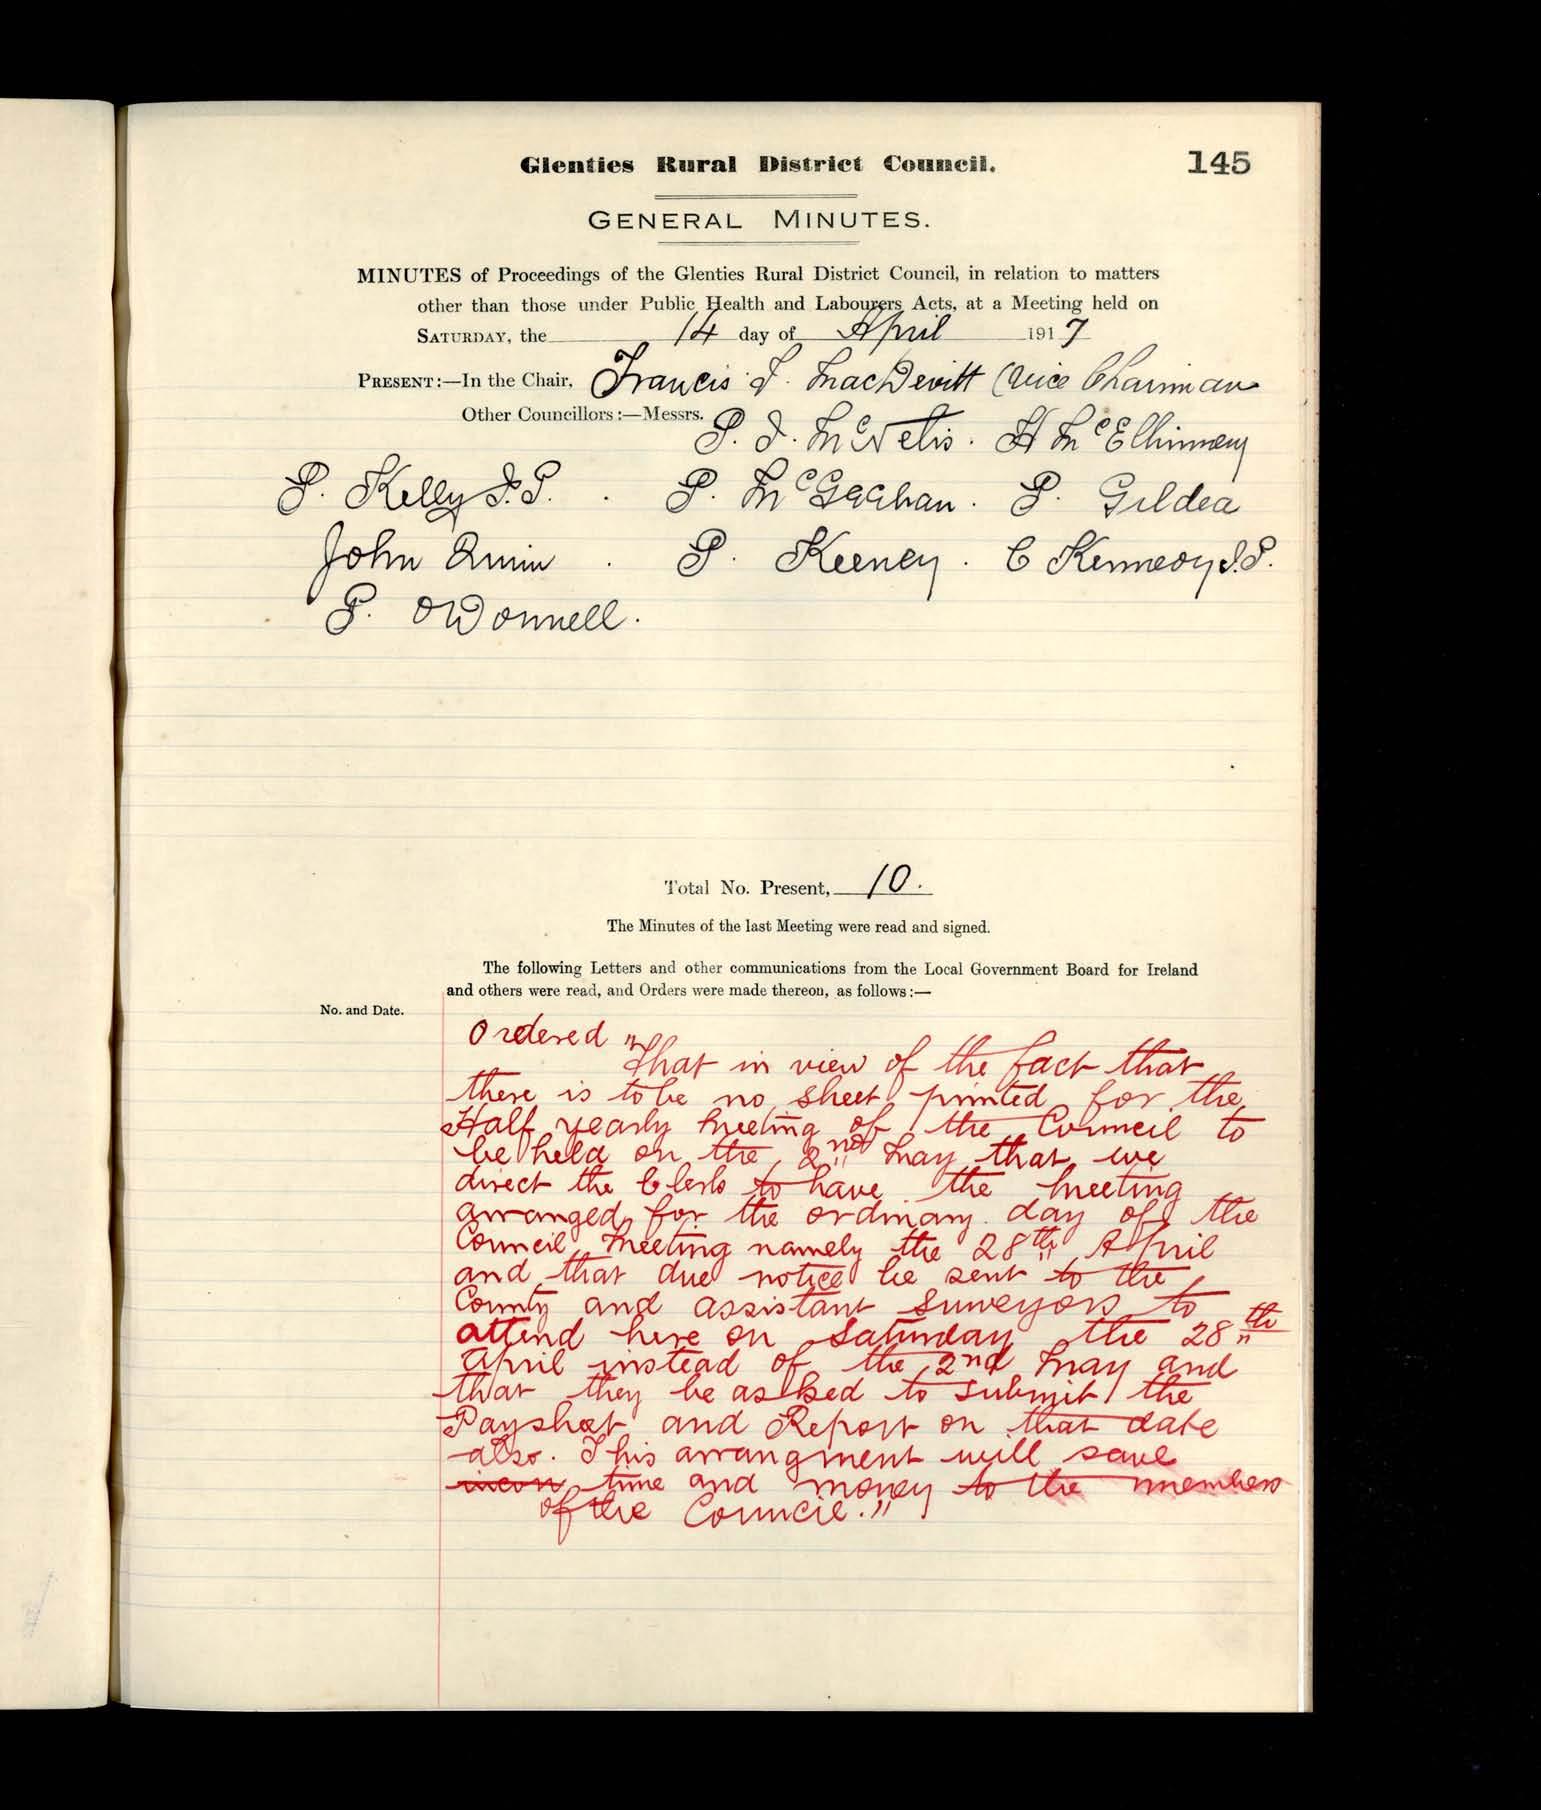 Glenties Rural District Council.
145
GENERAL MINUTES.
MINUTES of Proceedings of the Glenties Rural District Council, in relation to matters
other than those under Public Health and Labourers Acts, at a Meeting held on
SATURDAY, the 14 day of April 1917
PRESENT:—In the Chair, Francis J. MacDevitt (Vice Chairman
Other Councillors:—Messrs.
P. J. McNelis. H McElhinney
P. Kelly J.P. . P. McGeehan. P. Gildea
John Quinn . P. Keeney. C Kennedy J.P.
P. ODonnell.
Total No. Present, 10.
The Minutes of the last Meeting were read and signed.
The following Letters and other communications from the Local Government Board for Ireland
and others were read, and Orders were made thereon, as follows:—
No. and Date.
Ordered "
That in view of the fact that
there is to be no sheet printed for the
Half yearly meeting of the Council to
be held on the 2nd May that we
direct the Clerk to have the meeting
arranged for the ordinary day of the
Council Meeting namely the 28th April
and that due notice be sent to the
County and assistant Surveyors to
attend here on Saturday the 28th
April instead of the 2nd May and
that they be asked to submit the
Paysheet and Report on that date
also. This arrangment will save
time and money to the members
of the Council."